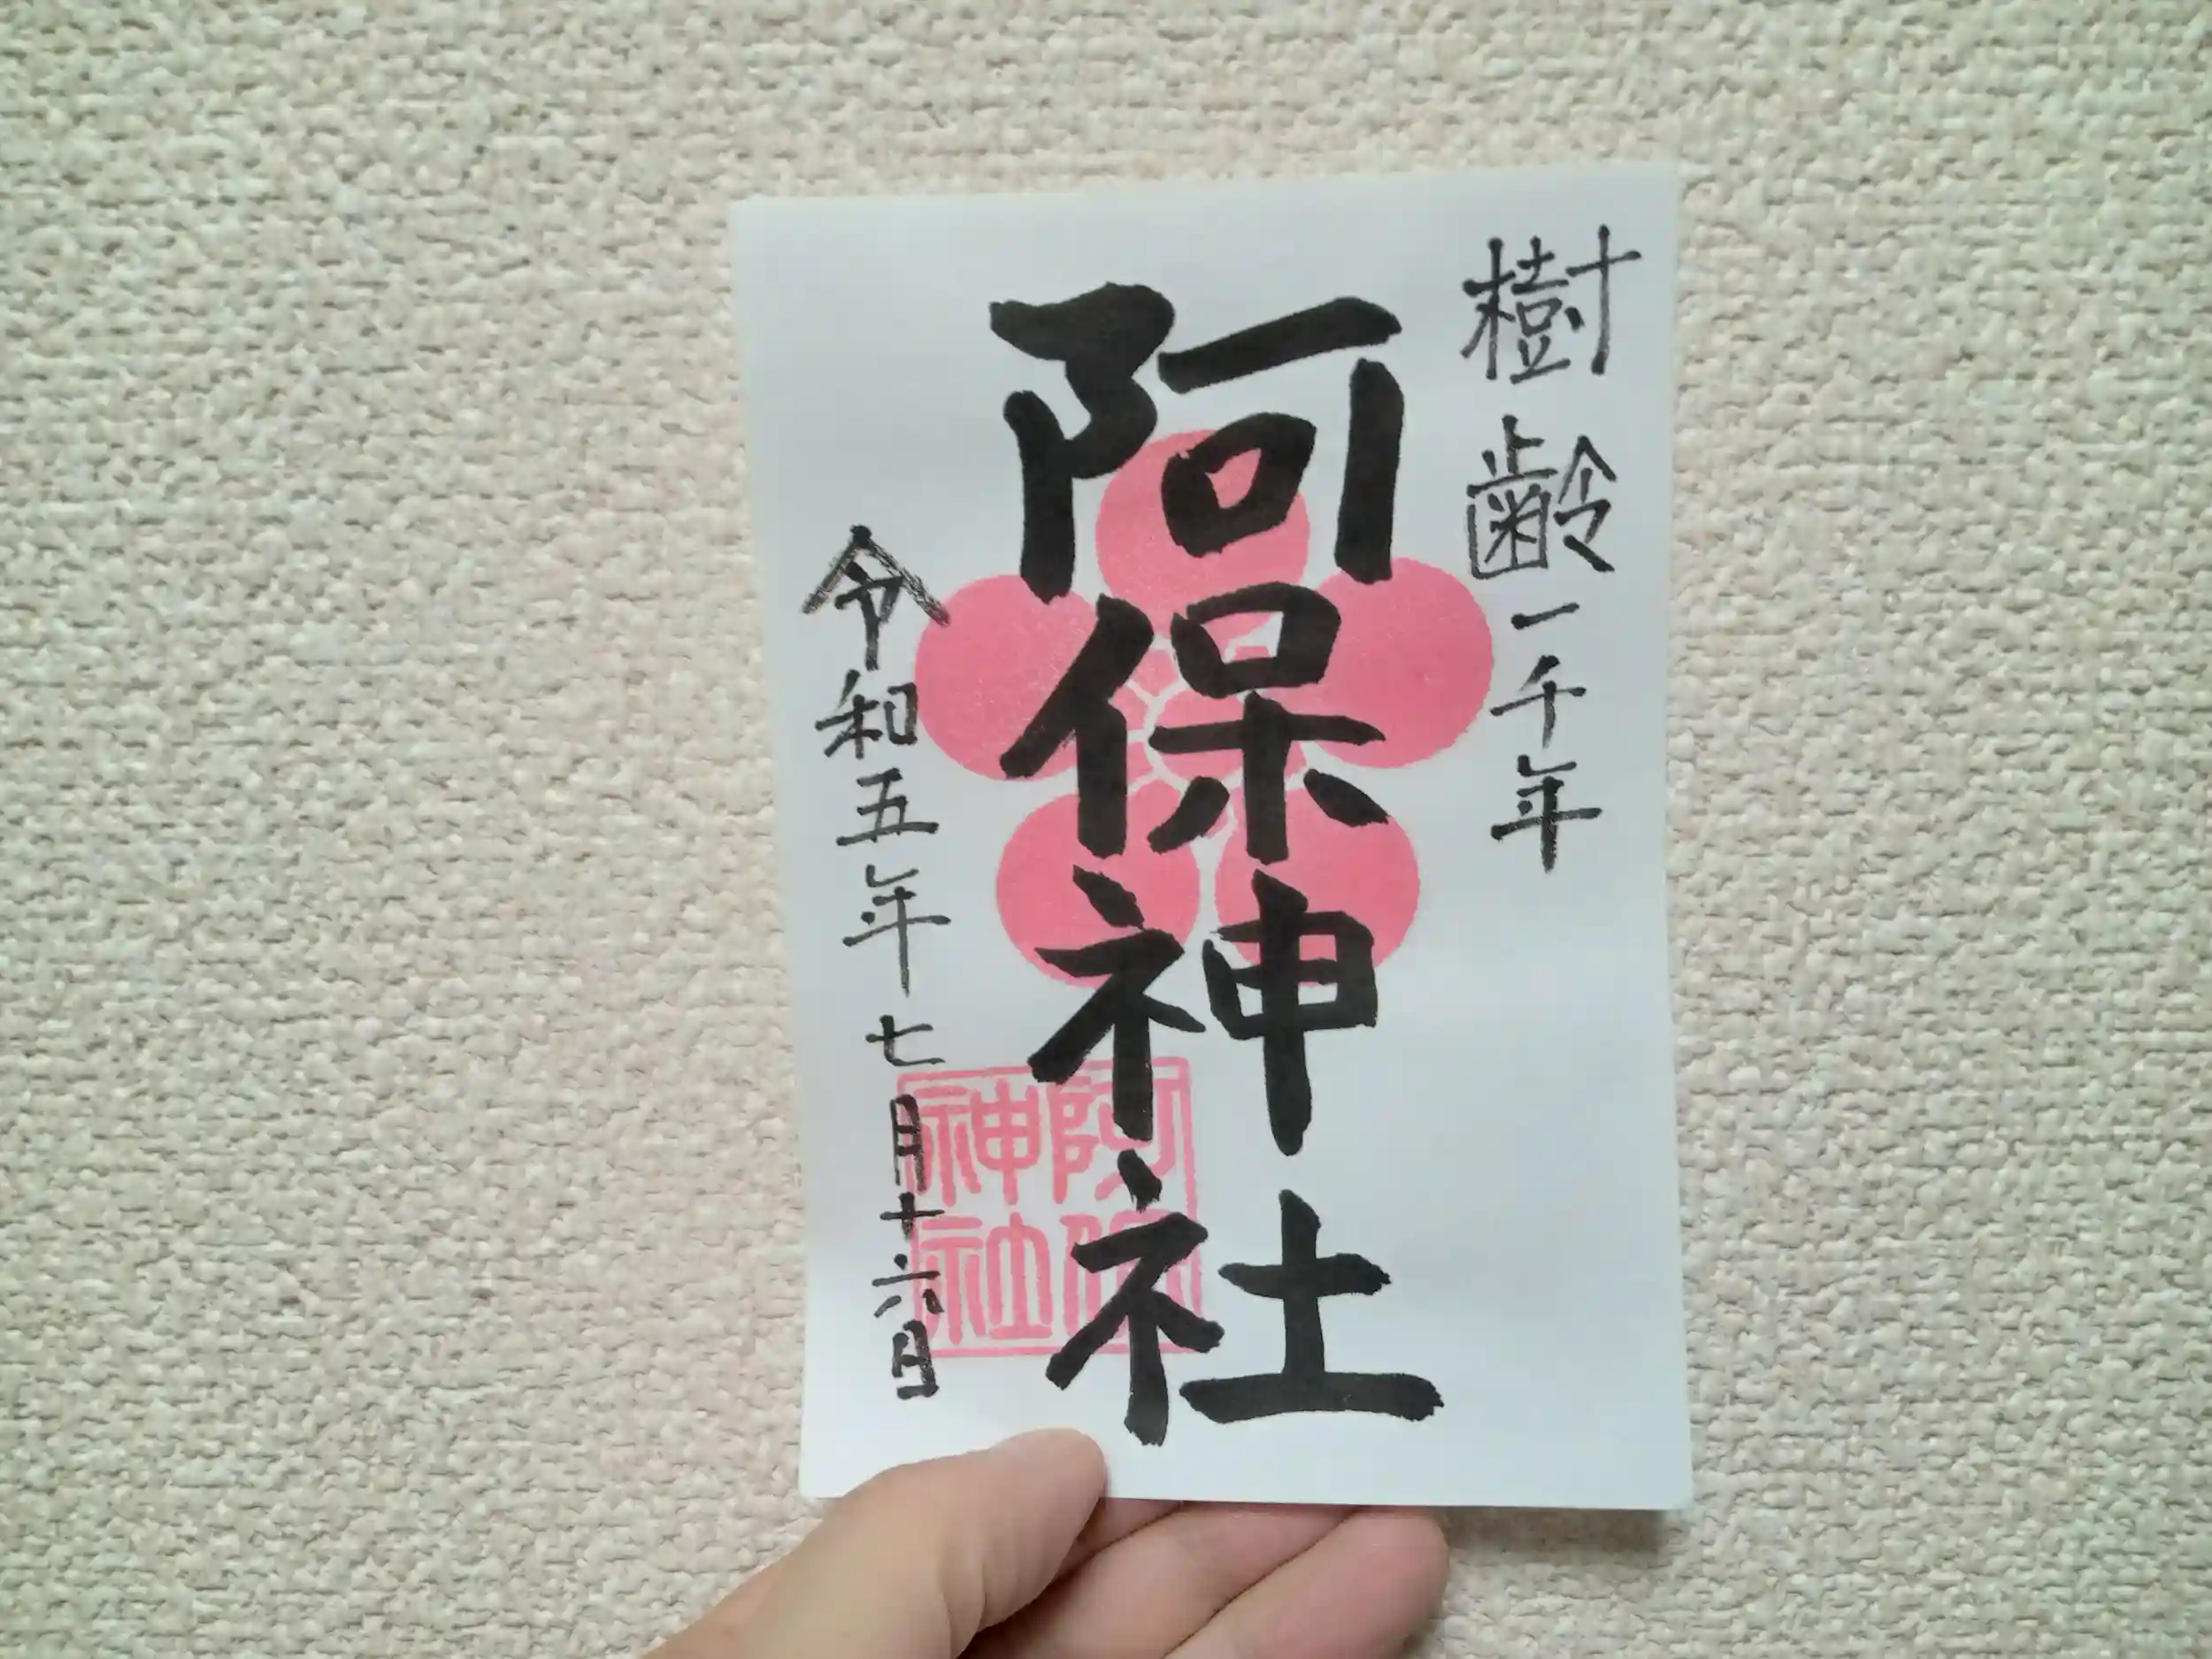 樹齢一千年
阿保神社
令和五年七月十六日
阿保
神社